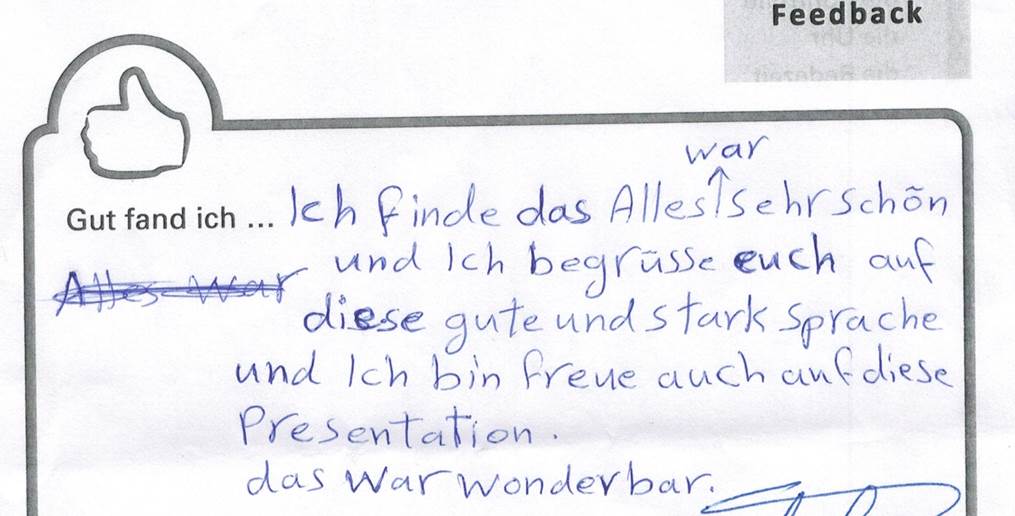 Feedback
war
Gut fand ich ... Ich finde das Alles sehr schön
und Ich begrüsse euch auf
Alles war
diese gute und stark sprache
und Ich bin freue auch auf diese
Presentation.
das war wonderbar.